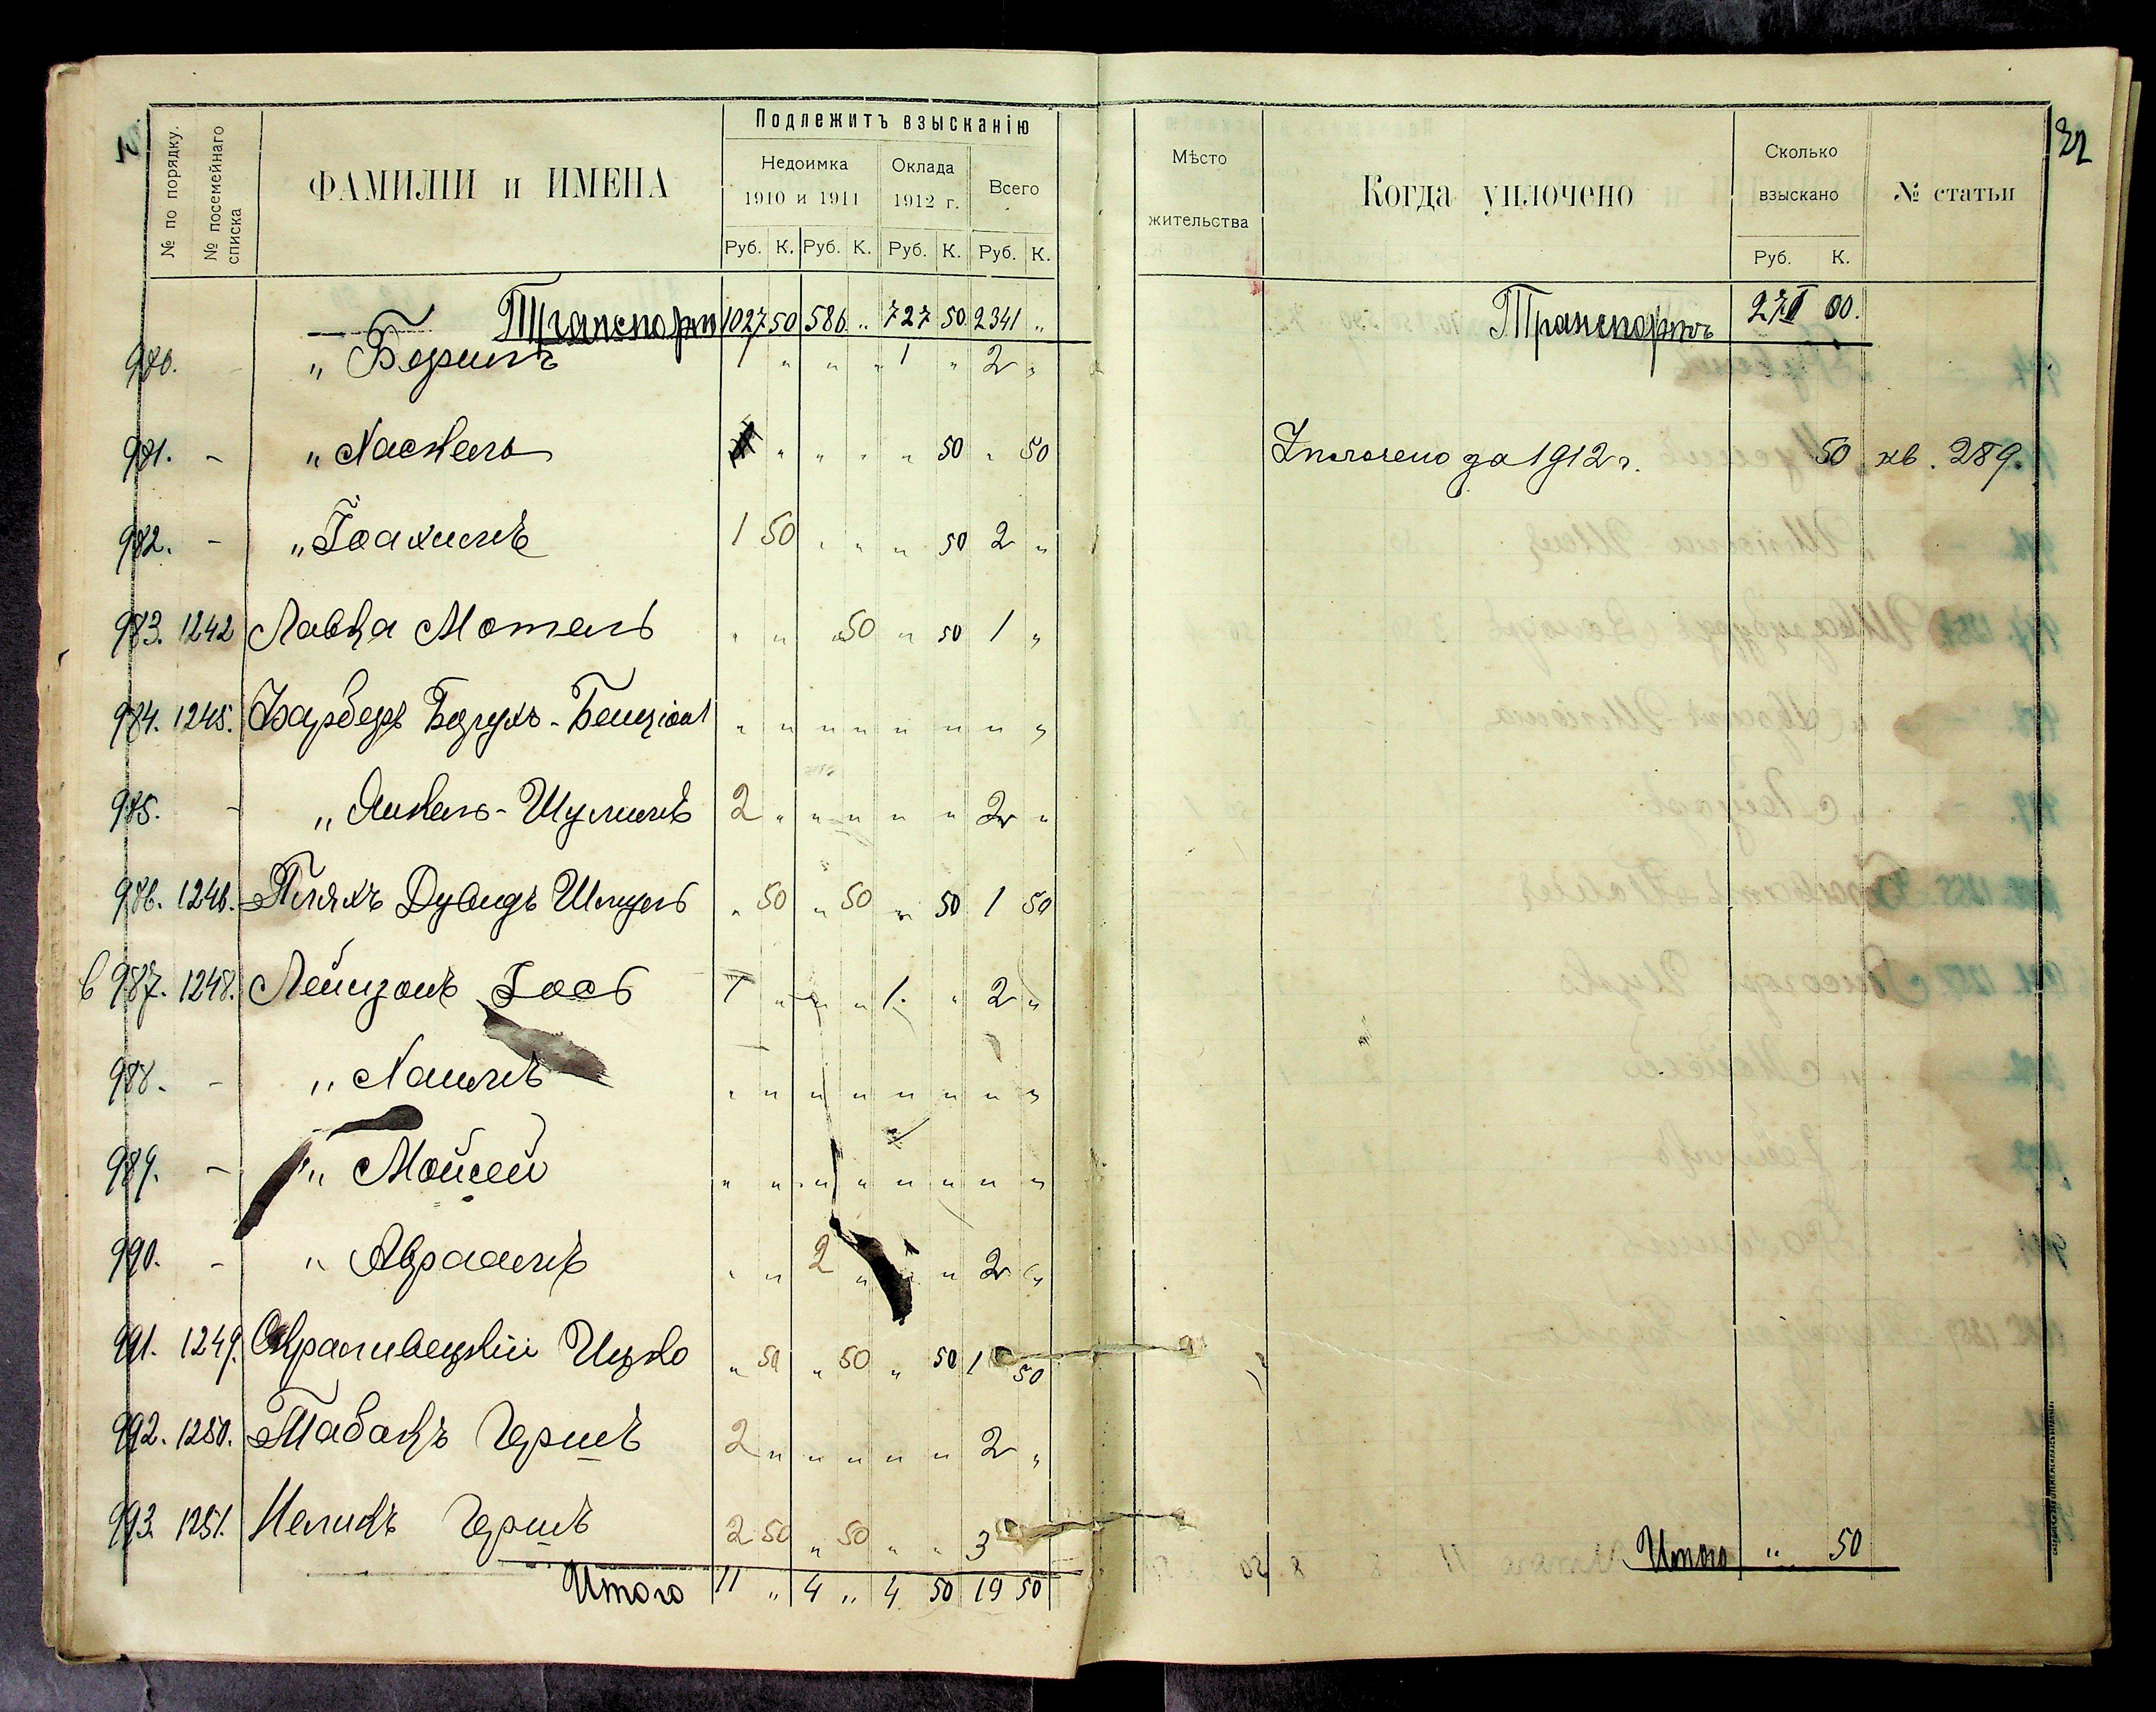 32
№ по порядку.
№ посемейнаго списка
ФАМИЛІИ и ИМЕНА
Подлежитъ взысканію
Недоимка 1910 и 1911
Оклада 1912 г.
Всего
Руб. К. Руб. К. Руб. К. Руб. К.
Мѣсто жительства
Когда уплочено
Сколько взыскано
Руб. К.
№ статьи
Транспортъ 1027 50 586 „ 727 50 2341 „
Транспортъ
980. „ Беримъ 1 „ „ „ 1 „ 2 „
981. - „ Хаскель „ „ „ „ 50 „ 50 Уплочено за 1912 г. 50 кв. 289.
982. - „ Іоахимъ 1 50 „ „ „ 50 2 „
983. 1242 Лавда Мотель „ „ „ 50 „ 50 1 „
984. 1245. Барухъ-Бенціонъ „ „ „ „ „ „ „ „
985. - „ Янкель-Шулимъ 2 „ „ „ „ „ 2 „
986. 1246. Пляхъ Дувидъ Шмуль „ 50 „ 50 „ 50 1 50
987. 1248. Лейзонъ Іось 1 „ „ „ 1 „ 2 „
988. - „ Хаимъ „ „ „ „ „ „ „ „
989. - „ Мойсей „ „ „ „ „ „ „ „
990. - „ Абраамъ „ „ 2 „ „ „ 2 „
991. 1249. Ицко „ 50 „ 50 „ 50 1 50
992. 1250. Табакъ Гершъ 2 „ „ „ „ „ 2 „
993. 1251. Меликъ Гершъ 2 50 „ 50 „ „ 3
Итого 11 „ 4 „ 4 50 19 50
Итого „ 50